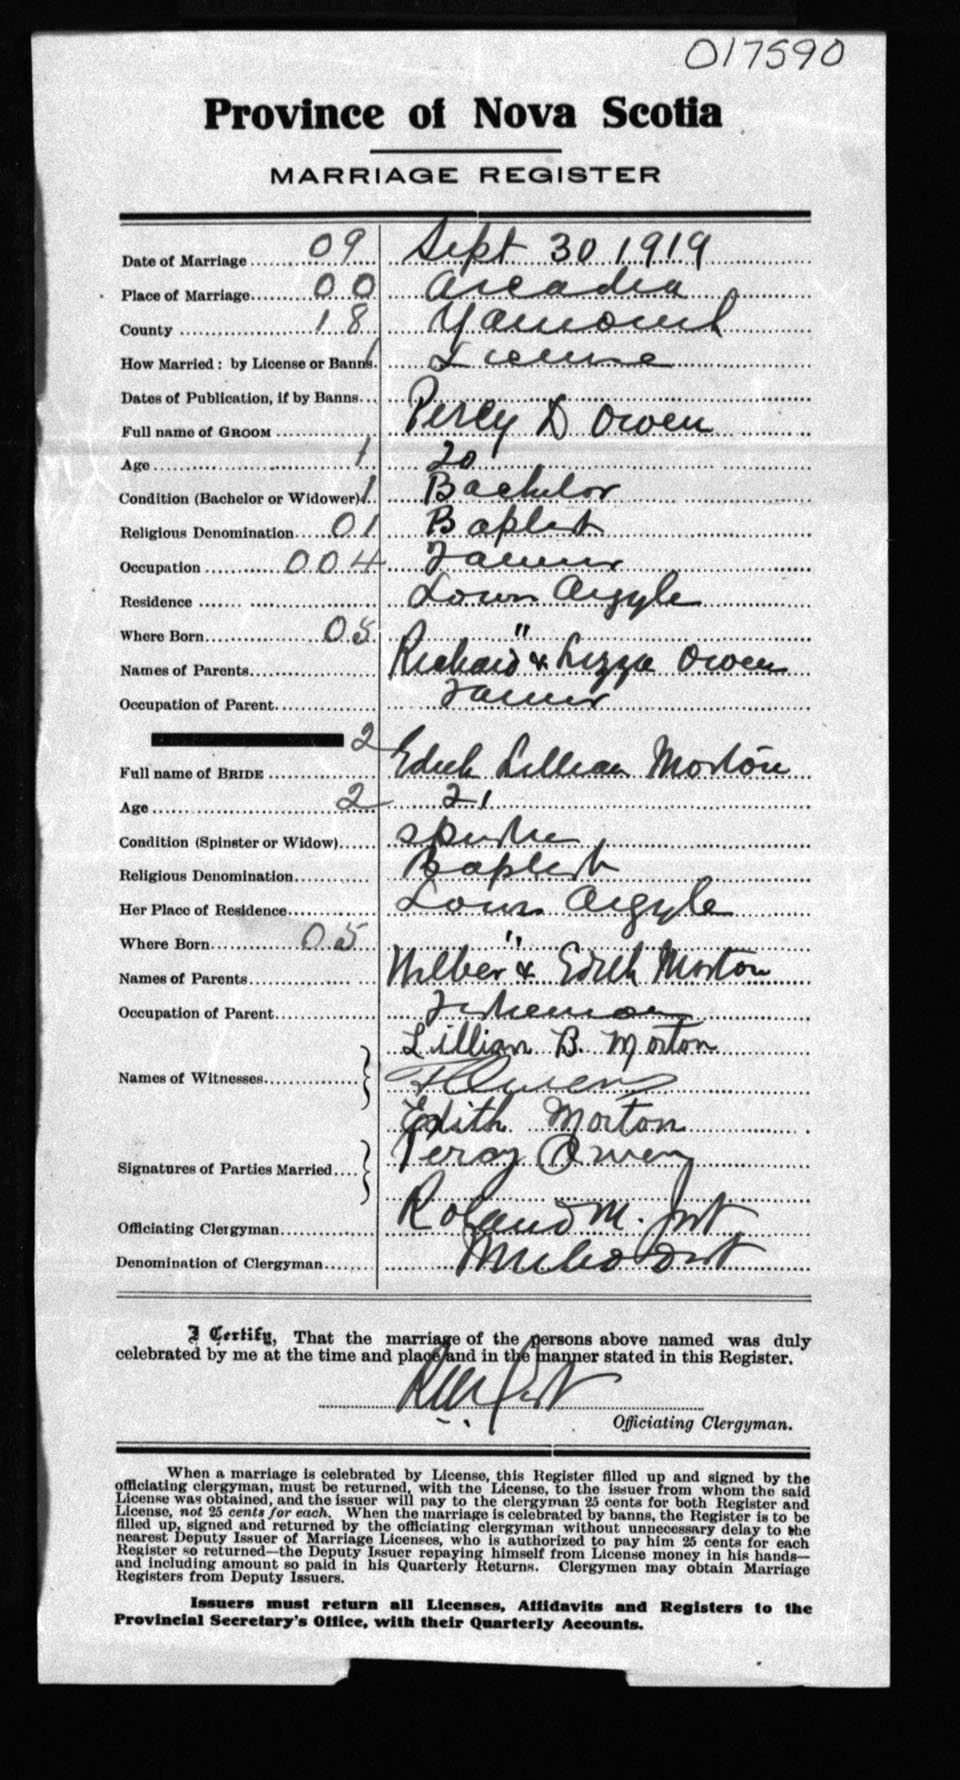 017590
Province of Nova Scotia
MARRIAGE REGISTER
Date of Marriage 09 Sept 30 1919
Place of Marriage 00 Arcadia
County 18 Yarmouth
How Married: by License or Banns. 1 License
Dates of Publication, if by Banns
Full name of GROOM Percy D Owen
Age 1 20
Condition (Bachelor or Widower) 1 Bachelor
Religious Denomination 01 Baptist
Occupation 004 Farmer
Residence Lower Argyle
Where Born 05 "
Names of Parents Richard & Lizzie Owen
Occupation of Parent Farmer
2
Full name of BRIDE Edith Lillian Morton
Age 2 21
Condition (Spinster or Widow) Spinster
Religious Denomination Baptist
Her Place of Residence Lower Argyle
Where Born 05 "
Names of Parents Wilber & Edith Morton
Occupation of Parent Fisherman
Lillian B. Morton
Names of Witnesses Owen
Edith Morton
Signatures of Parties Married Percy Owen
Officiating Clergyman Roland M.
Denomination of Clergyman
I Certify, That the marriage of the persons above named was duly
celebrated by me at the time and place and in the manner stated in this Register.
Officiating Clergyman.
When a marriage is celebrated by License, this Register filled up and signed by the
officiating clergyman, must be returned, with the License, to the issuer from whom the said
License was obtained, and the issuer will pay to the clergyman 25 cents for both Register and
License, not 25 cents for each. When the marriage is celebrated by banns, the Register is to be
filled up, signed and returned by the officiating clergyman without unnecessary delay to the
nearest Deputy Issuer of Marriage Licenses, who is authorized to pay him 25 cents for each
Register so returned—the Deputy Issuer repaying himself from License money in his hands—
and including amount so paid in his Quarterly Returns. Clergymen may obtain Marriage
Registers from Deputy Issuers.
Issuers must return all Licenses, Affidavits and Registers to the
Provincial Secretary's Office, with their Quarterly Accounts.